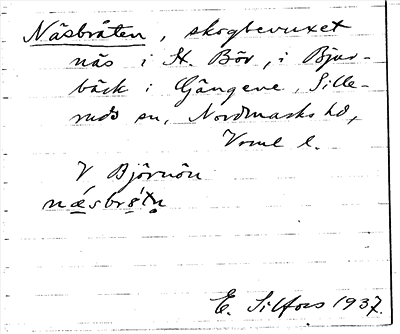 Näsbråten, skogbevuxet
näs i St. Bör, i Bjur-
bäck i Gängene, Sille-
ruds sn, Nordmarks hd,
Vrml l.
V Björnön
E. Silfors 1937.